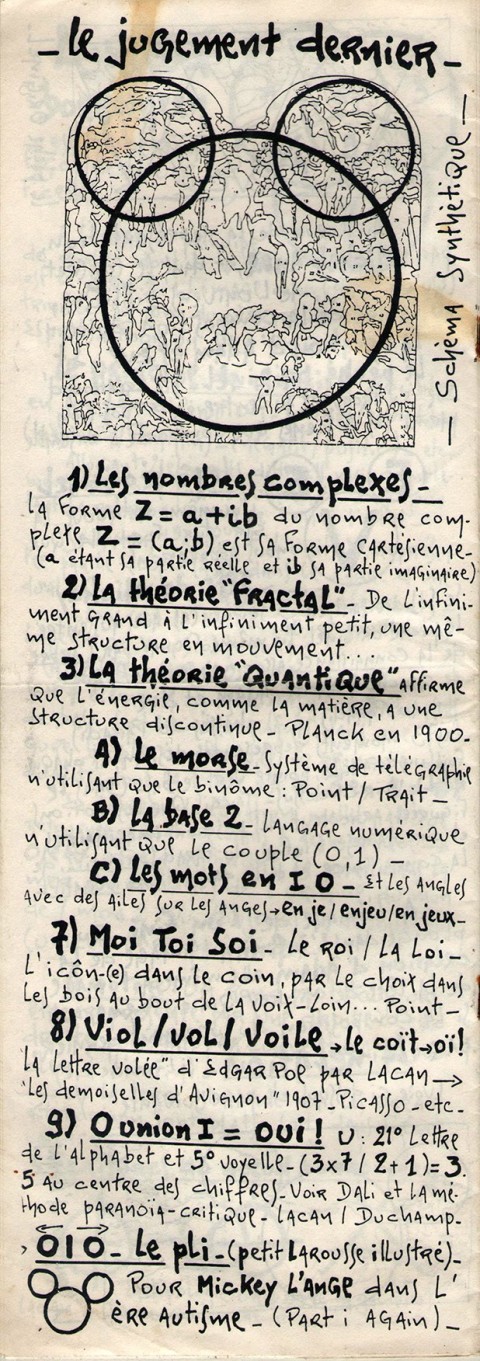 _ le jugement dernier _
_ Schéma Synthétique _
1) Les nombres complexes _
La forme Z = a + ib du nombre com-
plexe Z = (a;b) est sa forme cartésienne_
(a étant sa partie réelle et ib sa partie imaginaire)
2) La théorie "Fractal" _ De l'infini-
ment grand à l'infiniment petit, une mê-
me structure en mouvement...
3) La théorie "Quantique" affirme
que l'énergie, comme la matière, a une
structure discontinue _ Planck en 1900_
A) Le morse _ système de télégraphie
n'utilisant que le binôme : Point / Trait _
B) La base 2 _ Langage numérique
n'utilisant que le couple (0,1) _
C) Les mots en I O _ Et les angles
avec des ailes sur les anges → en je / enjeu / en jeux _
7) Moi Toi Soi _ Le roi / La Loi _
L'icôn-(e) dans le coin, par le choix dans
Les bois au bout de la voix_Loin... Point _
8) Viol / vol / Voile → le coït → oï!
"La lettre volée" d'Edgar Poe par Lacan →
"Les demoiselles d'Avignon" 1907_Picasso_etc_
9) O union I = oui ! U : 21° lettre
de l'alphabet et 5° voyelle _ (3x7 / 2+1) = 3.
5 au centre des chiffres _ Voir Dali et la mé-
thode paranoïa-critique _ Lacan / Duchamp_
, OIO _ Le pli _ (petit Larousse illustré) _
Pour Mickey L'Ange dans L'
ère Autisme _ (Part i Again) _